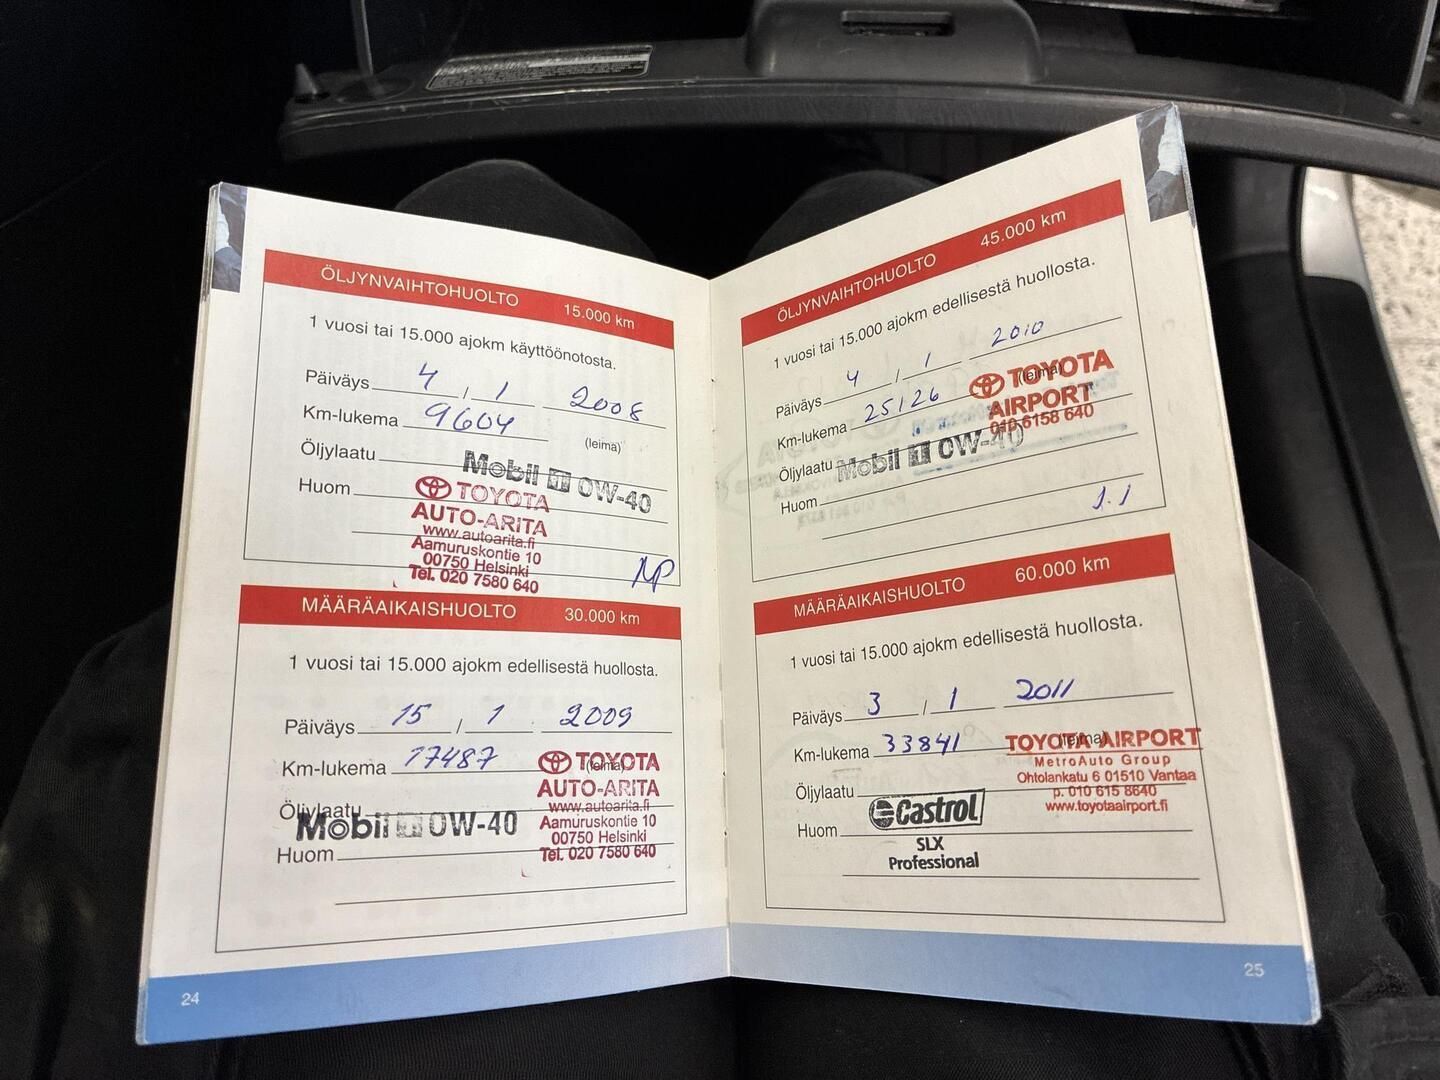 ÖLJYNVAIHTOHUOLTO 15.000 km
1 vuosi tai 15.000 ajokm käyttöönotosta.
Päiväys 4 / 1 2008
Km-lukema 9604
(leima)
Öljylaatu Mobil 1 0W-40
Huom
TOYOTA
AUTO-ARITA
www.autoarita.fi
Aamuruskontie 10
00750 Helsinki
Tel. 020 7580 640
MÄÄRÄAIKAISHUOLTO 30.000 km
1 vuosi tai 15.000 ajokm edellisestä huollosta.
Päiväys 15 / 1 2009
Km-lukema 17487
(leima)
TOYOTA
AUTO-ARITA
www.autoarita.fi
Aamuruskontie 10
00750 Helsinki
Tel. 020 7580 640
Öljylaatu
Mobil 1 0W-40
Huom
24
ÖLJYNVAIHTOHUOLTO 45.000 km
1 vuosi tai 15.000 ajokm edellisestä huollosta.
Päiväys 4 / 1 2010
Km-lukema 25126
(leima)
TOYOTA
AIRPORT
010 6158 640
Öljylaatu Mobil 1 0W-40
Huom
MÄÄRÄAIKAISHUOLTO 60.000 km
1 vuosi tai 15.000 ajokm edellisestä huollosta.
Päiväys 3 / 1 2011
Km-lukema 33841
(leima)
TOYOTA AIRPORT
MetroAuto Group
Ohtolankatu 6 01510 Vantaa
p. 010 615 8640
www.toyotaairport.fi
Öljylaatu
Castrol
Huom
SLX
Professional
25